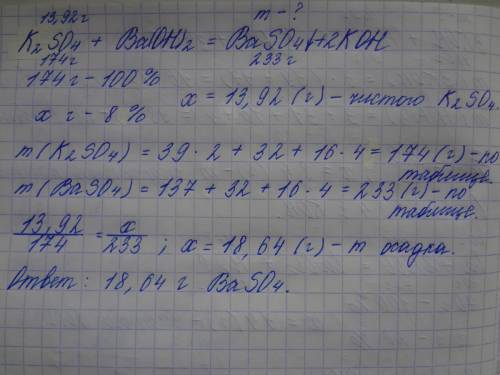 13,92г m - ?
K₂SO₄ + Ba(OH)₂ = BaSO₄↓+2KOH
174г 233 г
174 г - 100 %
x г - 8 % x = 13,92 (г) - чистого K₂SO₄.
m(K₂SO₄) = 39 · 2 + 32 + 16 · 4 = 174 (г) - по таблице
m(BaSO₄) = 137 + 32 + 16 · 4 = 233 (г) - по таблице.
13,92/174 = x/233 ; x = 18,64 (г) - m осадка.
Ответ: 18,64 г BaSO₄.